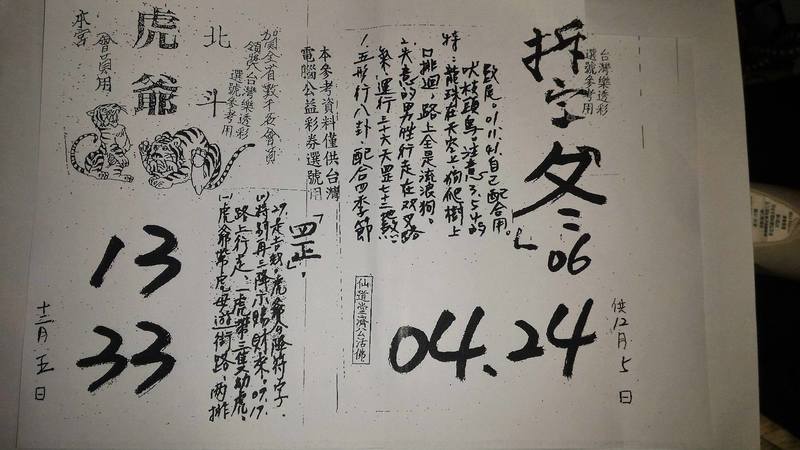 台灣樂透彩
選號參考用
拆字
冬
06
供12月5日
04.24
仙道堂濟公活佛
數尾。01.11.41自己配合用。
吠枝頭鳥。注意
特:龍珠在天空上,狗爬樹上
口排迴,路上全是流浪狗。
2.失意的男性行走在双叉路
氣,運行三十六天罡七十二地煞
1.五形行八卦,配合四季節
本參考資料僅供台灣
電腦公益彩券選號用
「罡」
27.走吉數。虎爺令降符字.
(2)特別再三降示賜財來。07.17
路上行走、一虎帶三隻幼虎、
(1)虎爺帶虎母遊街路、兩排
加贺全省數千友會員
領獎台灣樂透彩
選號參考用
北斗
虎爺
會員用
本宮
13
33
十二月五日